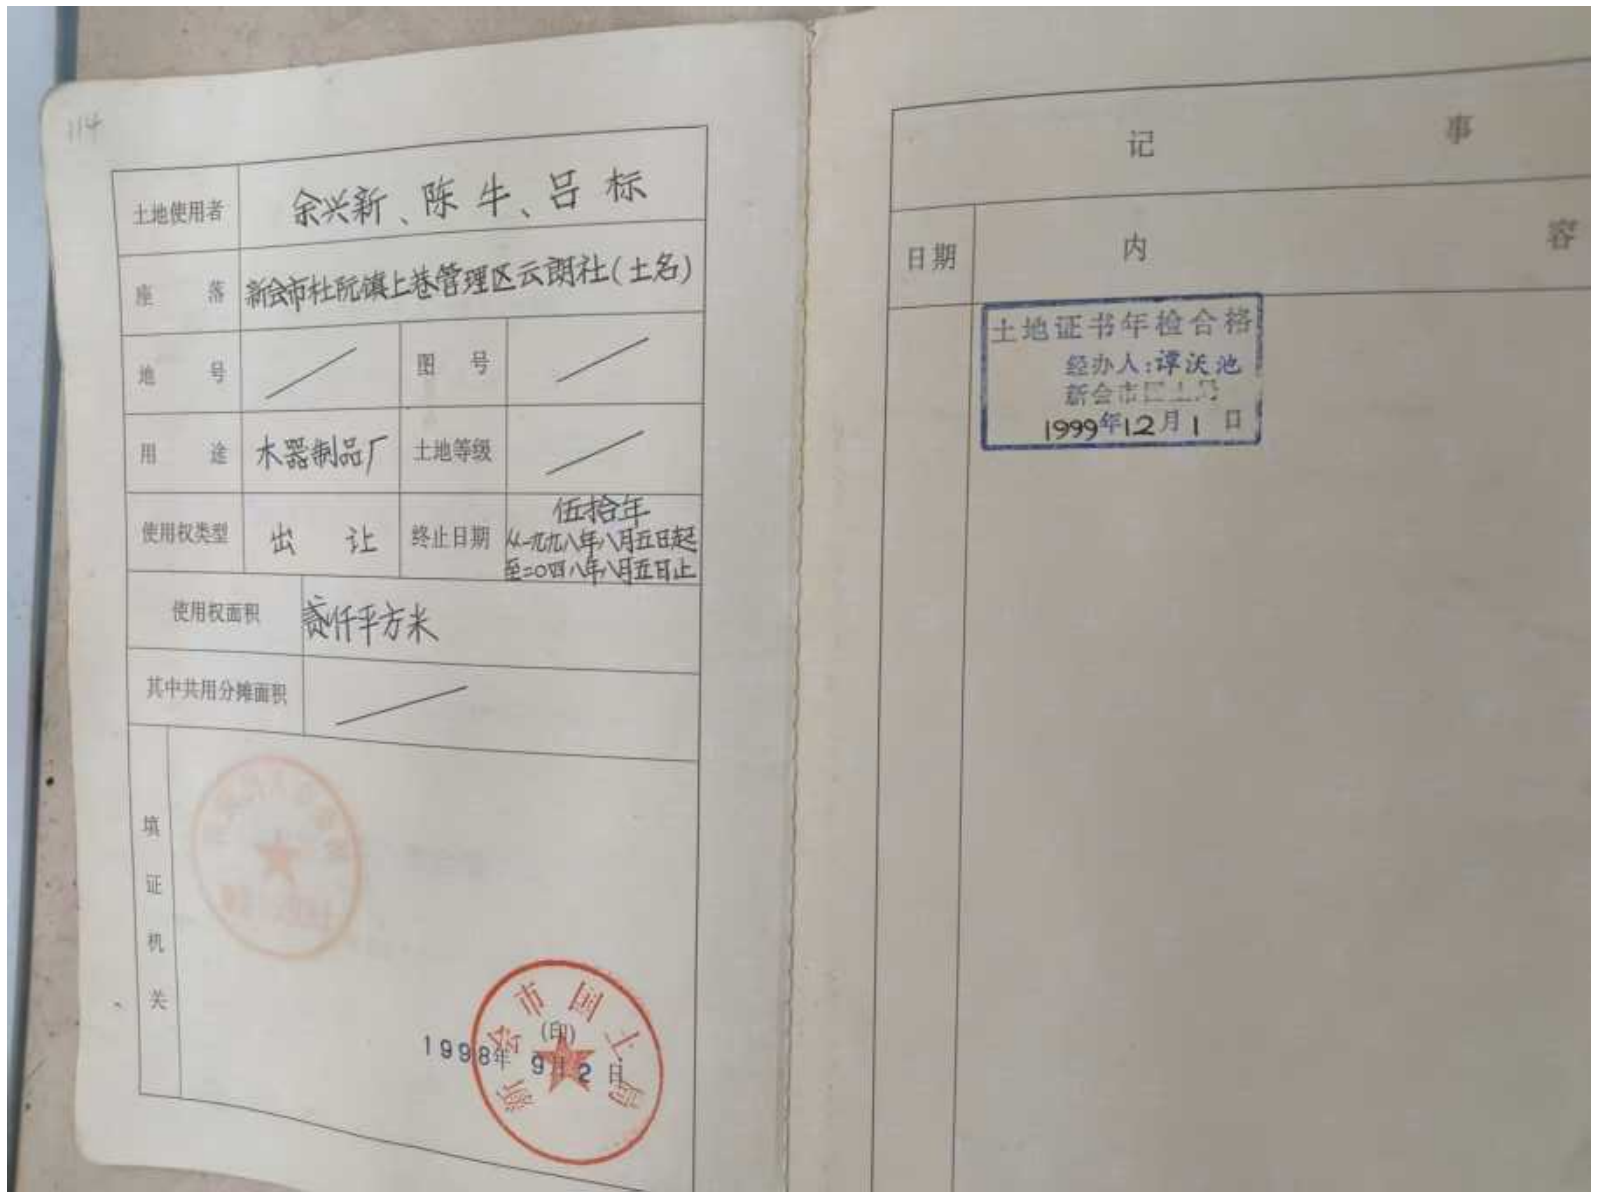 114
土地使用者 余兴新、陈牛、吕标
座落 新会市杜阮镇上巷管理区云朗社(土名)
地号 图号
用途 木器制品厂 土地等级
使用权类型 出让 终止日期 伍拾年
从一九九八年八月五日起
至二〇四八年八月五日止
使用权面积 贰仟平方米
其中共用分摊面积
填证机关
新会市国土局
(印)
1998年9月2日
记事
日期 内容
土地证书年检合格
经办人:谭沃池
新会市国土局
1999年12月1日